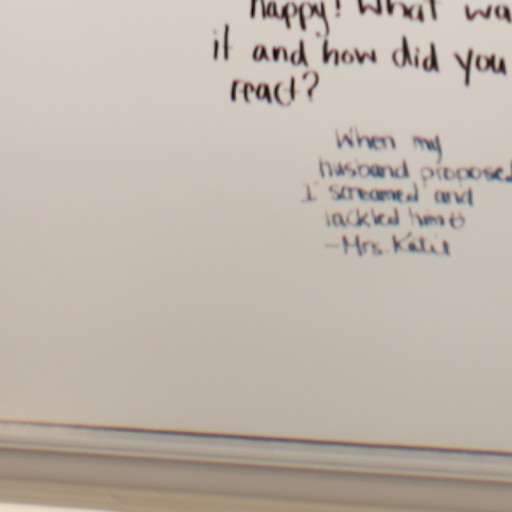 happy! What wa
it and how did you
react?
When my
husband proposed
I screamed and
tackled him☺
-Mrs. Katie